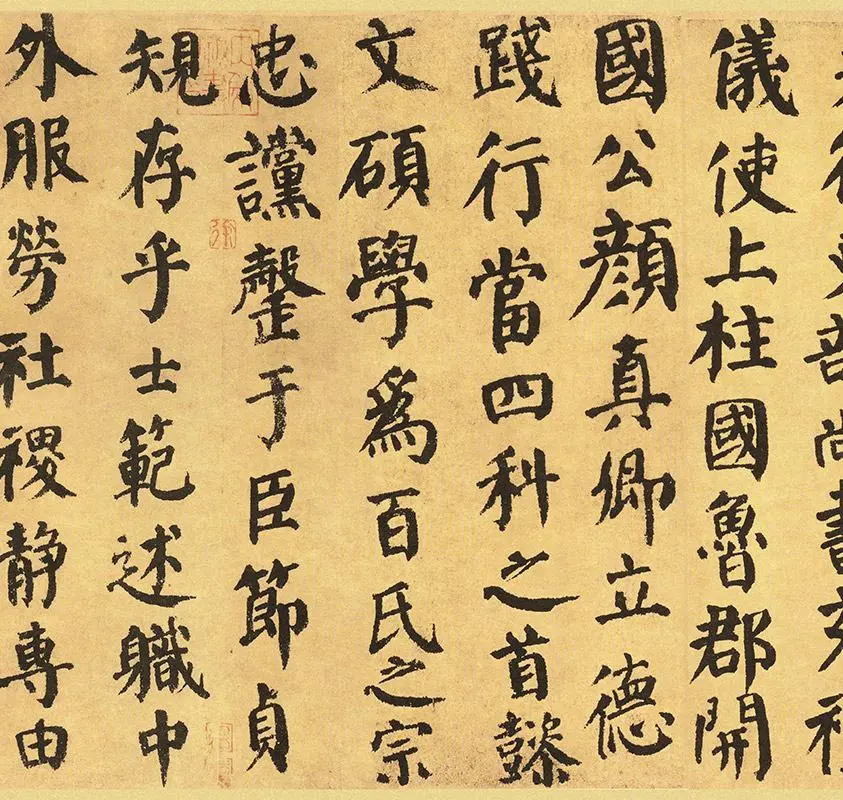 部尚書
儀使上柱國魯郡開
國公顔真卿立德
踐行當四科之首懿
文碩學爲百氏之宗
忠讜罄于臣節貞
規存乎士範述職中
外服勞社稷静專由